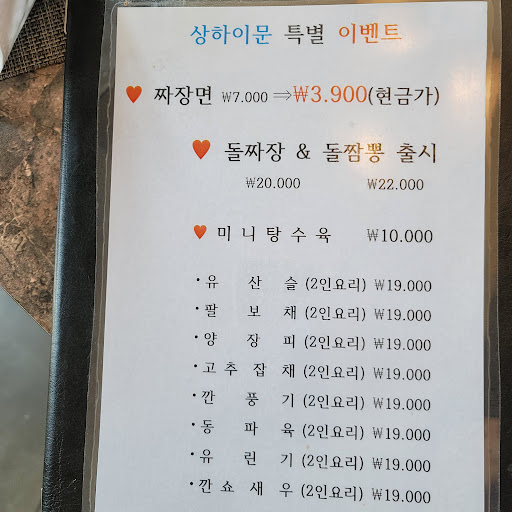 상하이문 특별 이벤트
♥ 짜장면 ₩7.000 ⇒₩3.900(현금가)
♥ 돌짜장 & 돌짬뽕 출시
₩20.000 ₩22.000
♥ 미니탕수육 ₩10.000
·유산슬 (2인요리) ₩19.000
·팔보채 (2인요리) ₩19.000
·양장피 (2인요리) ₩19.000
·고추잡채 (2인요리) ₩19.000
·깐풍기 (2인요리) ₩19.000
·동파육 (2인요리) ₩19.000
·유린기 (2인요리) ₩19.000
·깐쇼새우 (2인요리) ₩19.000